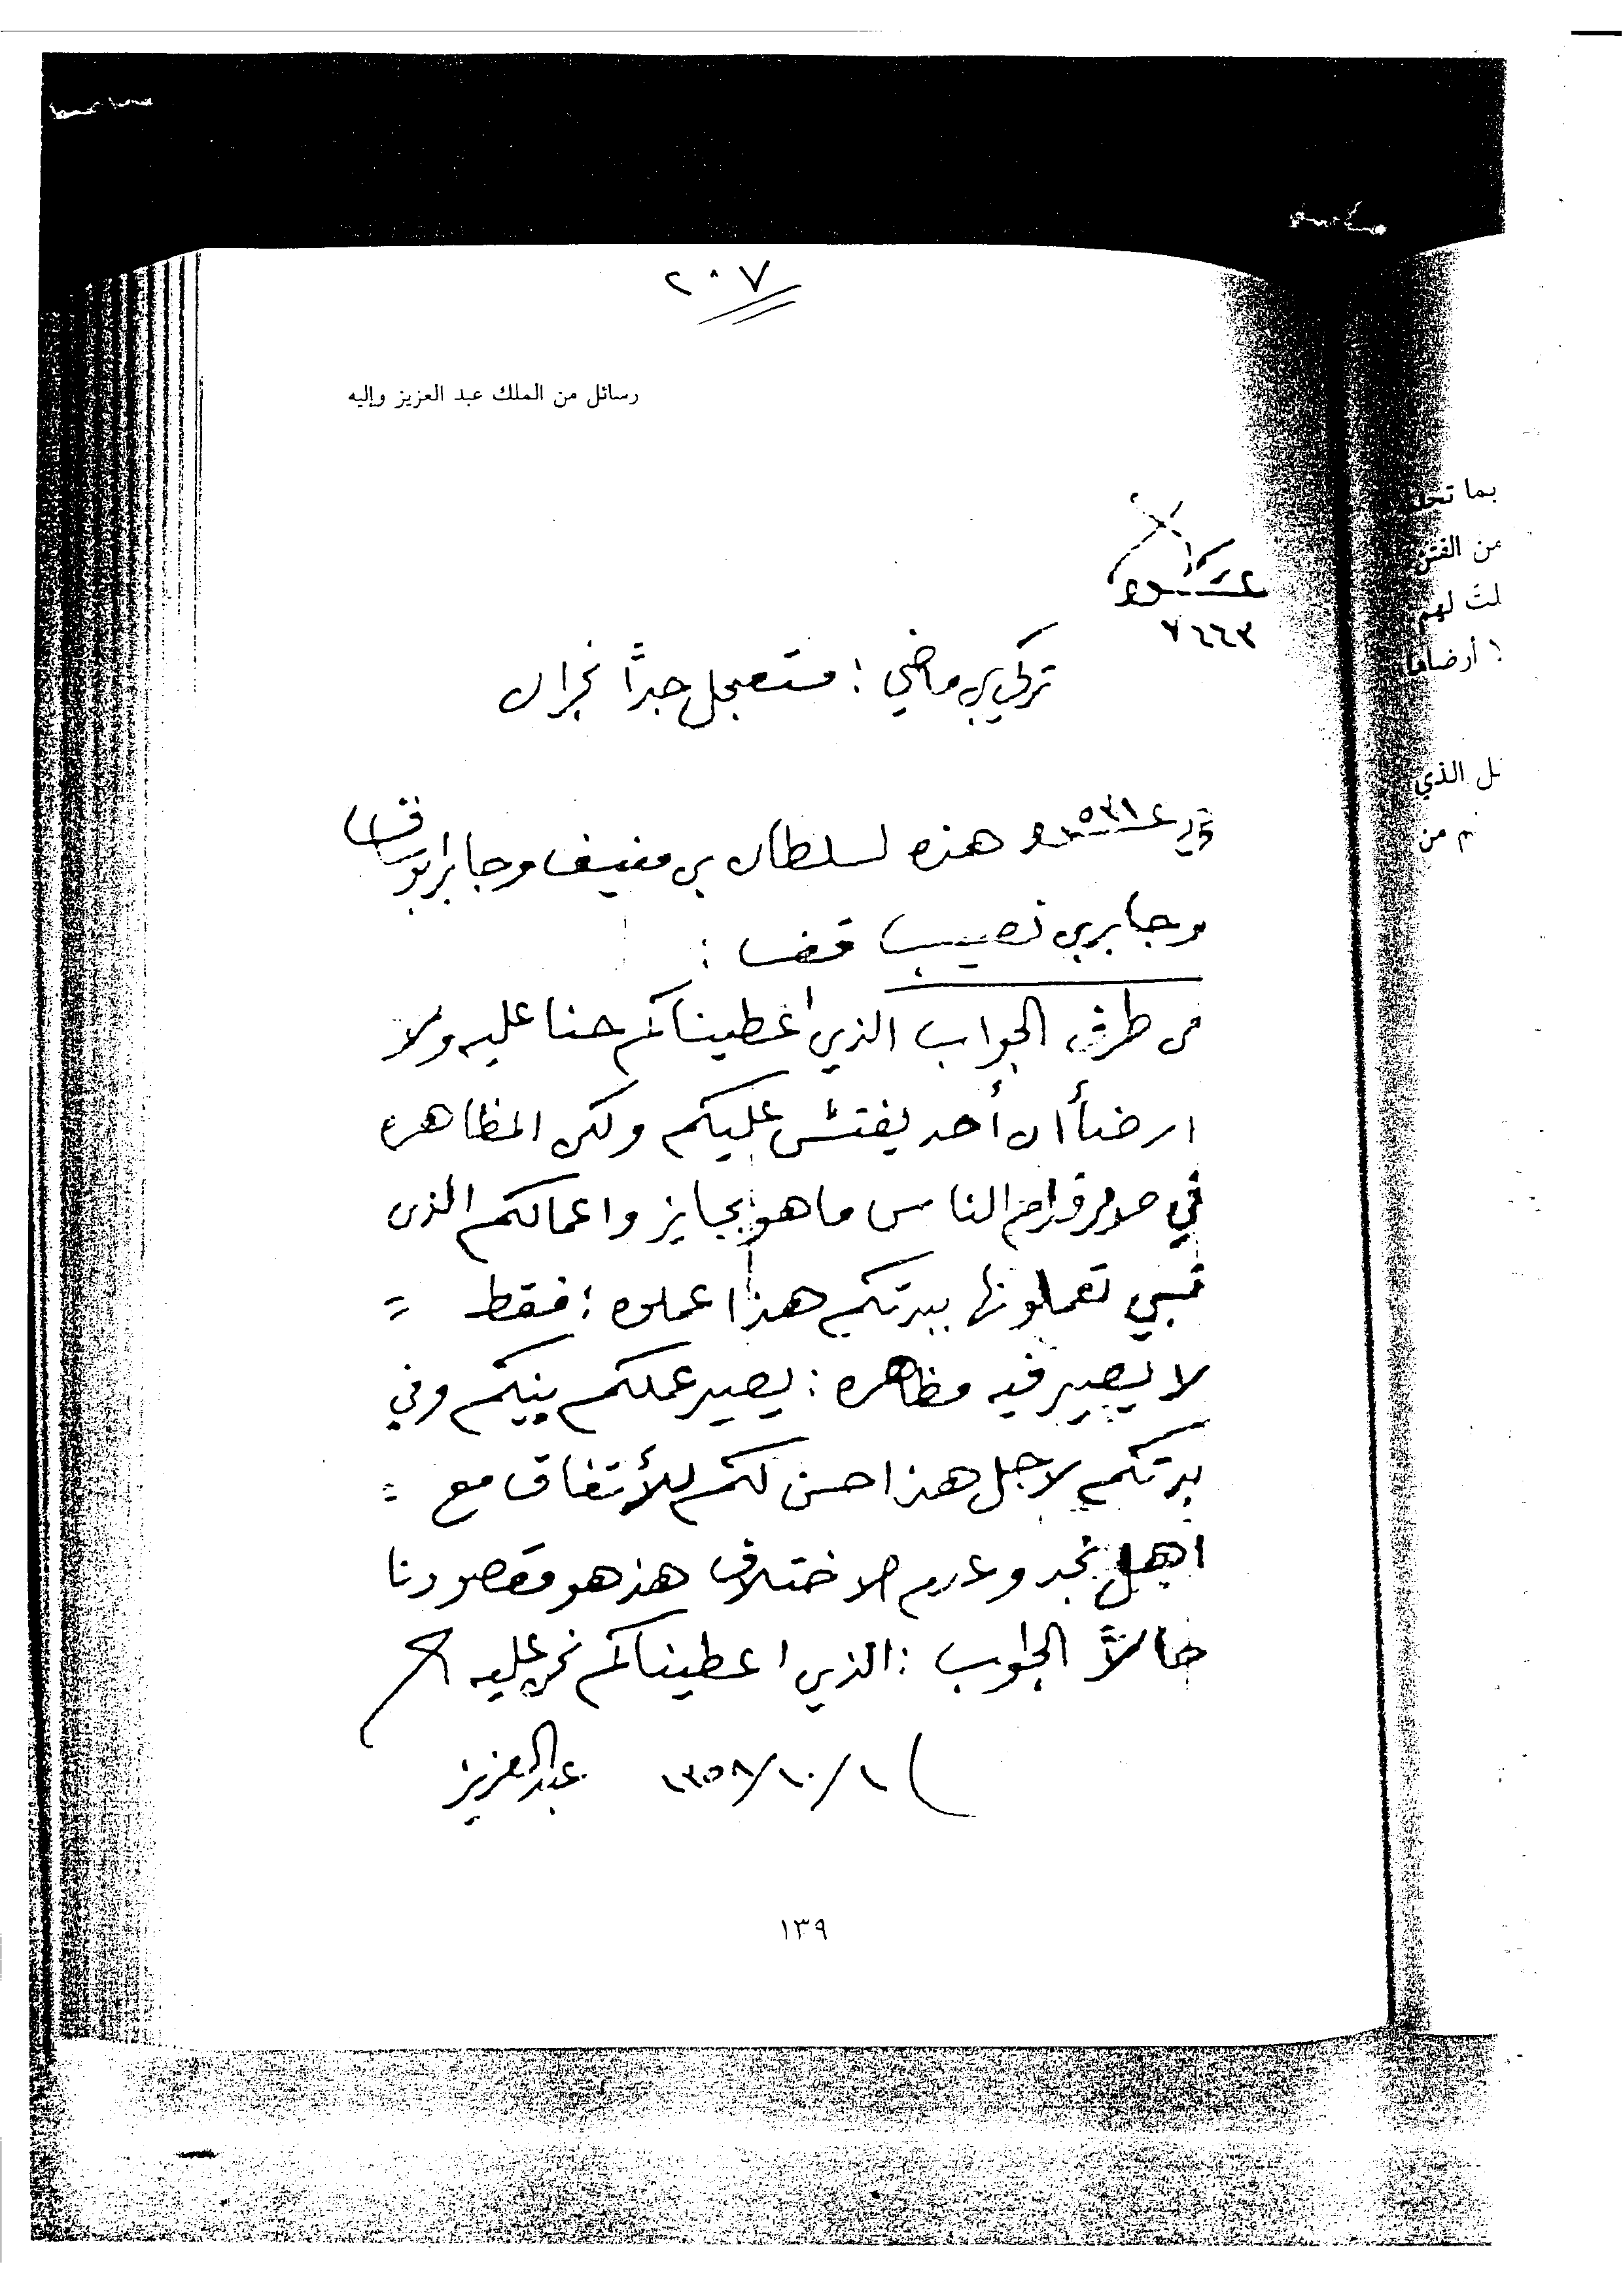 ٢٠٧
رسائل من الملك عبد العزيز وإليه
٧٦٦٣
تركي بن ماضي : مستعجل جداً نجران
هذه لسلطان بن منيف وجابر ابو ساق
وجابر بن نصيب قفا :
من طرف الجواب الذي اعطيناكم حنا عليه ولا
ارضا أن أحد يفتش عليكم ولكن المظاهره
في الناس ما هو بجايز واعمالكم الذى
تبي تعملونها ببرتكم هذا عملوه : فقط =
لا يصير فيه مظاهره : يصير عملكم بينكم وفي
برتكم لاجل هذا احسن لكم للأتفاق مع =
اهل نجد وعدم الاختلاف هذ هو مقصودنا
حالاً الجواب : الذي اعطيناكم نحن عليه
١/١٠/١٣٥٨ عبد العزيز
١٣٩
بما
من الفتن
لت لهم
ل الذي
م من